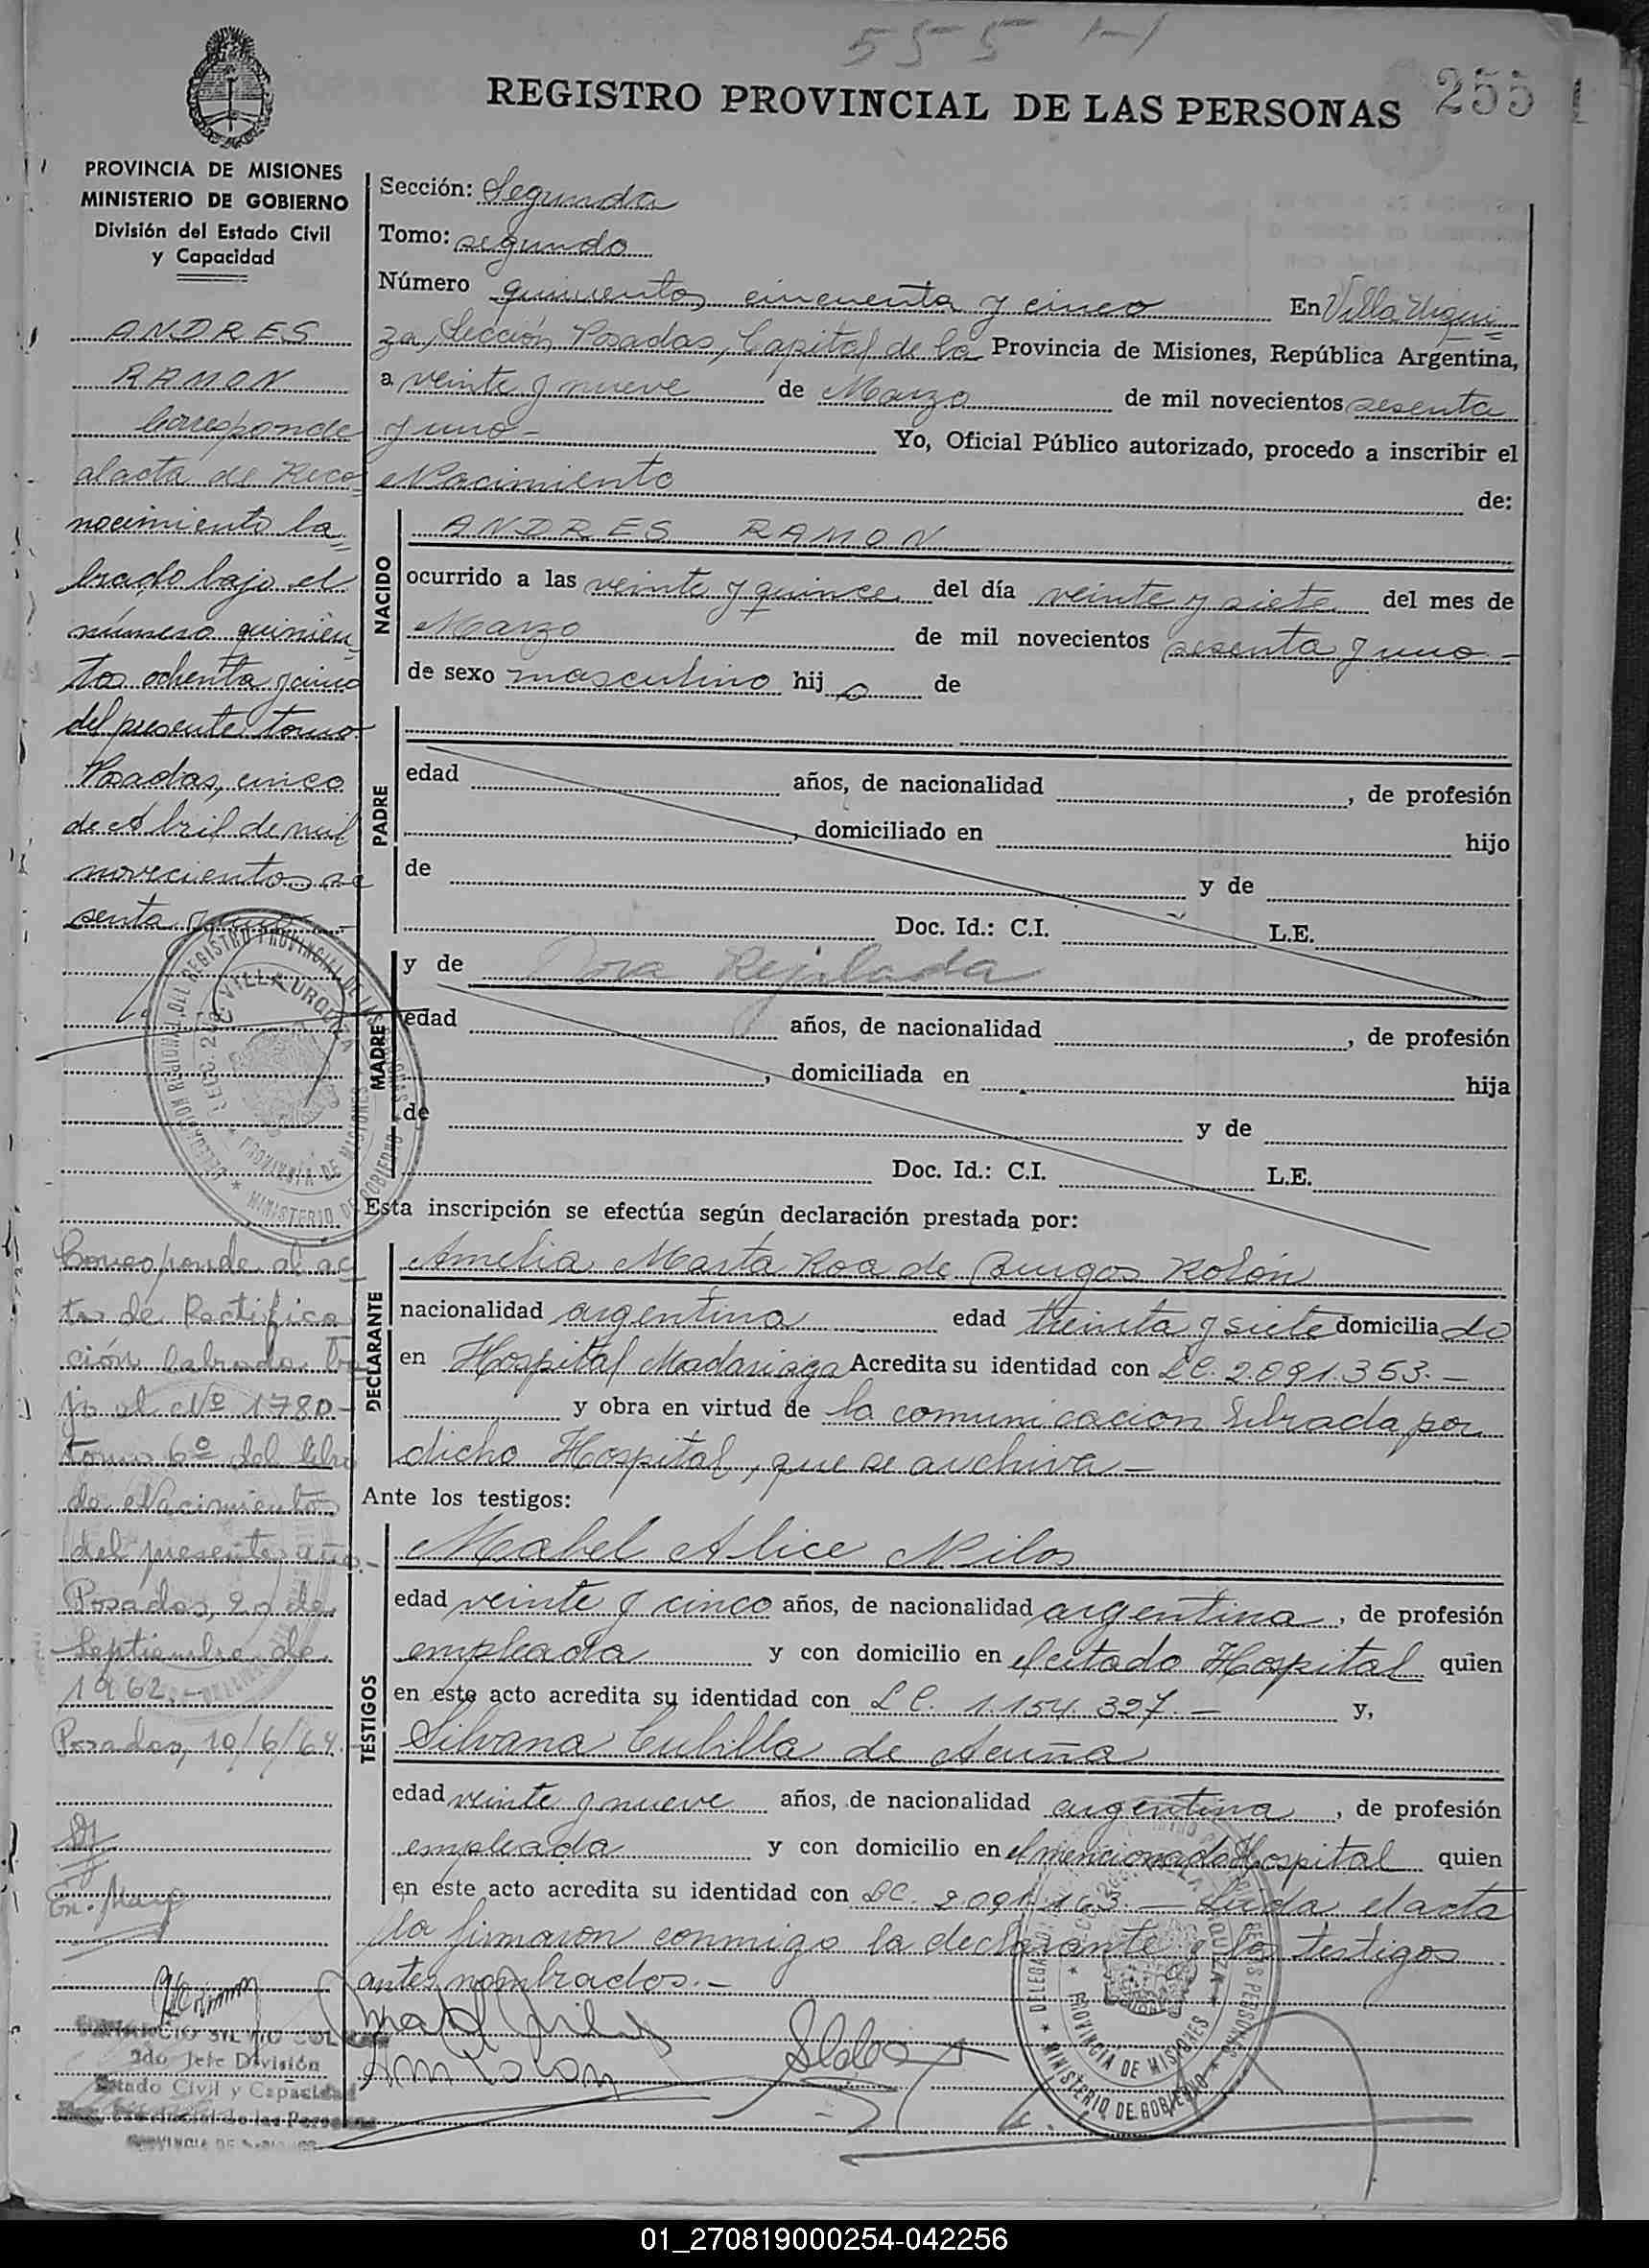 555
255
REGISTRO PROVINCIAL DE LAS PERSONAS
PROVINCIA DE MISIONES
MINISTERIO DE GOBIERNO
División del Estado Civil
y Capacidad
ANDRES
RAMON
Corresponde
al acta de Reco
nocimiento la
brado bajo el
número quinien
tos ochenta y cinco
del presente tomo
Posadas, cinco
de Abril de mil
novecientos se
senta y uno
Corresponde al ac
ta de Rectifica
ción labrada ba
jo el Nº 1780-
tomo 6º del libro
de Nacimiento
del presente año.-
Posadas, 20 de
Septiembre de
1962.-
Posadas, 10/6/64.
2do Jefe División
Estado Civil y Capacidad
Sección: Segunda
Tomo: segundo
Número quinientos cincuenta y cinco En Villa Urqui=
za, Sección Posadas, Capital de la Provincia de Misiones, República Argentina,
a veinte y nueve de Marzo de mil novecientos sesenta
y uno- Yo, Oficial Público autorizado, procedo a inscribir el
Nacimiento de:
NACIDO
ANDRES RAMON
ocurrido a las veinte y quince del día veinte y siete del mes de
Marzo de mil novecientos sesenta y uno-
de sexo masculino hijo de
PADRE
edad años, de nacionalidad , de profesión
, domiciliado en hijo
de y de
Doc. Id.: C.I. L.E.
MADRE
y de Dora Rejalada
edad años, de nacionalidad , de profesión
, domiciliada en hija
de y de
Doc. Id.: C.I. L.E.
Esta inscripción se efectúa según declaración prestada por:
DECLARANTE
Amelia Marta Roa de Burgos Rolón
nacionalidad argentina edad treinta y siete domiciliado
en Hospital Madariaga Acredita su identidad con LC. 2.091.353.-
y obra en virtud de la comunicacion librada por
dicho Hospital, que se archiva-
Ante los testigos:
TESTIGOS
Mabel Alice Nilos
edad veinte y cinco años, de nacionalidad argentina, de profesión
empleada y con domicilio en el citado Hospital quien
en este acto acredita su identidad con LC. 1.154.327.- y,
Silvana Cubilla de Acuña
edad veinte y nueve años, de nacionalidad argentina, de profesión
empleada y con domicilio en el mencionado Hospital quien
en este acto acredita su identidad con LC. 2.091.163.- Leída el acta
la firmaron conmigo la declarante y los testigos
antes nombrados.-
DELEGACION REGIONAL DEL REGISTRO PROVINCIAL DE LAS PERSONAS
VILLA URQUIZA
PROVINCIA DE MISIONES
MINISTERIO DE GOBIERNO
01_270819000254-042256